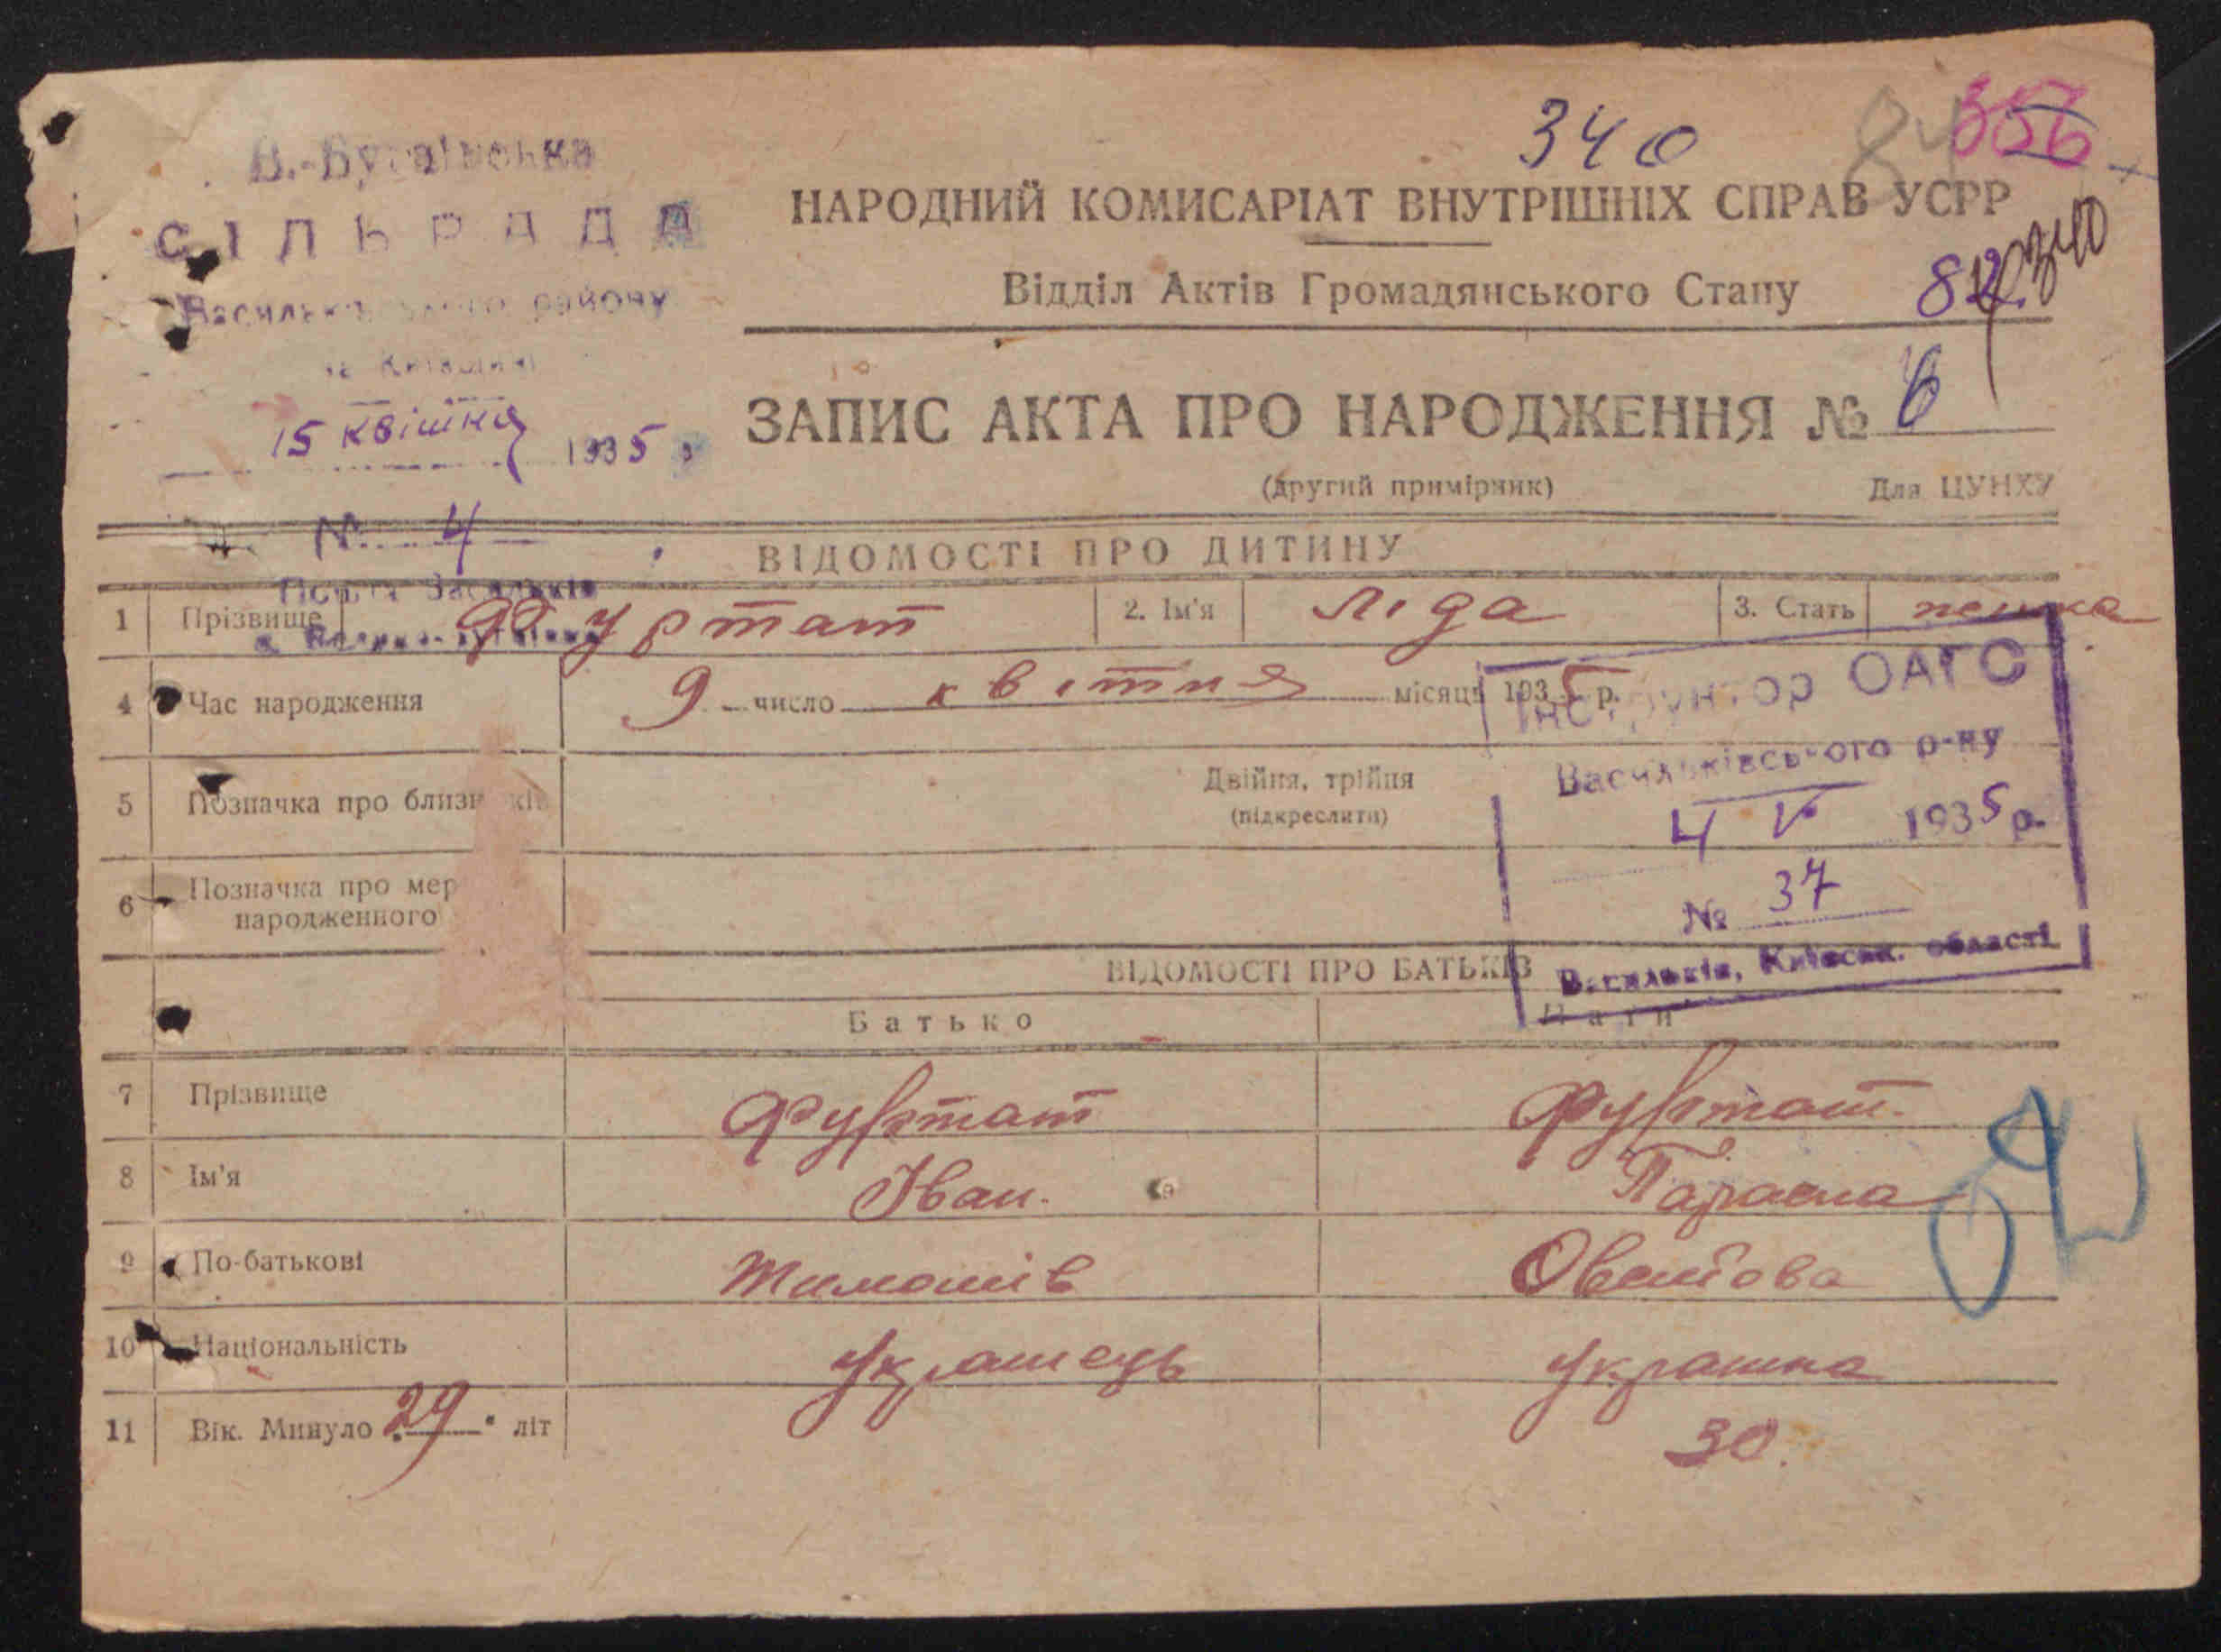 340
84
356
В.-Бугаївська
СІЛЬРАДА
Васильківського району
на Київщині
15 квітня 1935 р
№ 4
Пошта Васильків
НАРОДНИЙ КОМИСАРІАТ ВНУТРІШНІХ СПРАВ УСРР
Відділ Актів Громадянського Стану
82
340
ЗАПИС АКТА ПРО НАРОДЖЕННЯ № 6
(другий примірник) Для ЦУНХУ
ВІДОМОСТІ ПРО ДИТИНУ
1 Прізвище Фуртат 2. Ім'я Ліда 3. Стать
4 Час народження 9 число квітня місяць 1935 р.
Інструктор ОАГС
Васильківського р-ну
4 V 1935 р.
№ 37
Васильків, Київськ. області
5 Позначка про близнюків Двійня, трійня
(підкреслити)
6 Позначка про мер
народженного
ВІДОМОСТІ ПРО БАТЬКІВ
Батько Мати
7 Прізвище Фуртат Фуртат.
8 Ім'я Іван. Параска
9 По-батькові Тимошів
10 Національність Українець Українка
11 Вік. Минуло 29 літ 30.